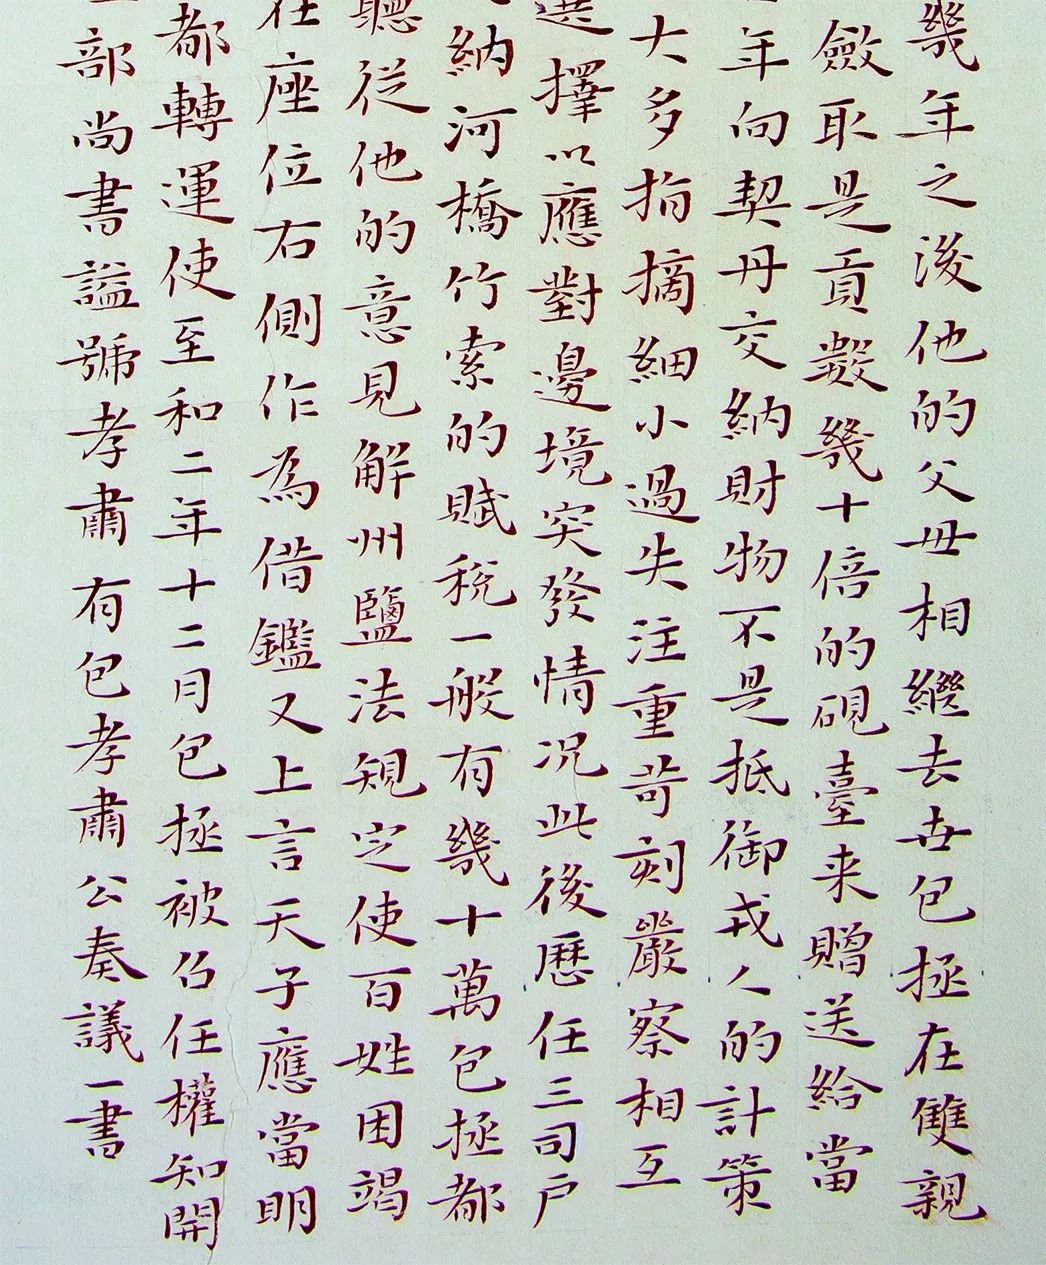 幾年之後他的父毋相繼去世包拯在雙親
斂取是貢數幾十倍的硯臺来贈送給當
年向契丹交納財物不是抵御戎人的計策
大多指摘細小過失注重苛刻嚴察相互
選擇以應對邊境突發情況此後歷任三司户
納河橋竹索的賦稅一般有幾十萬包拯都
聽從他的意見解州鹽法規定使百姓困竭
在座位右側作為借鑑又上言天子應當明
都轉運使至和二年十二月包拯被召任權知開
部尚書謚號孝肅有包孝肅公奏議一書